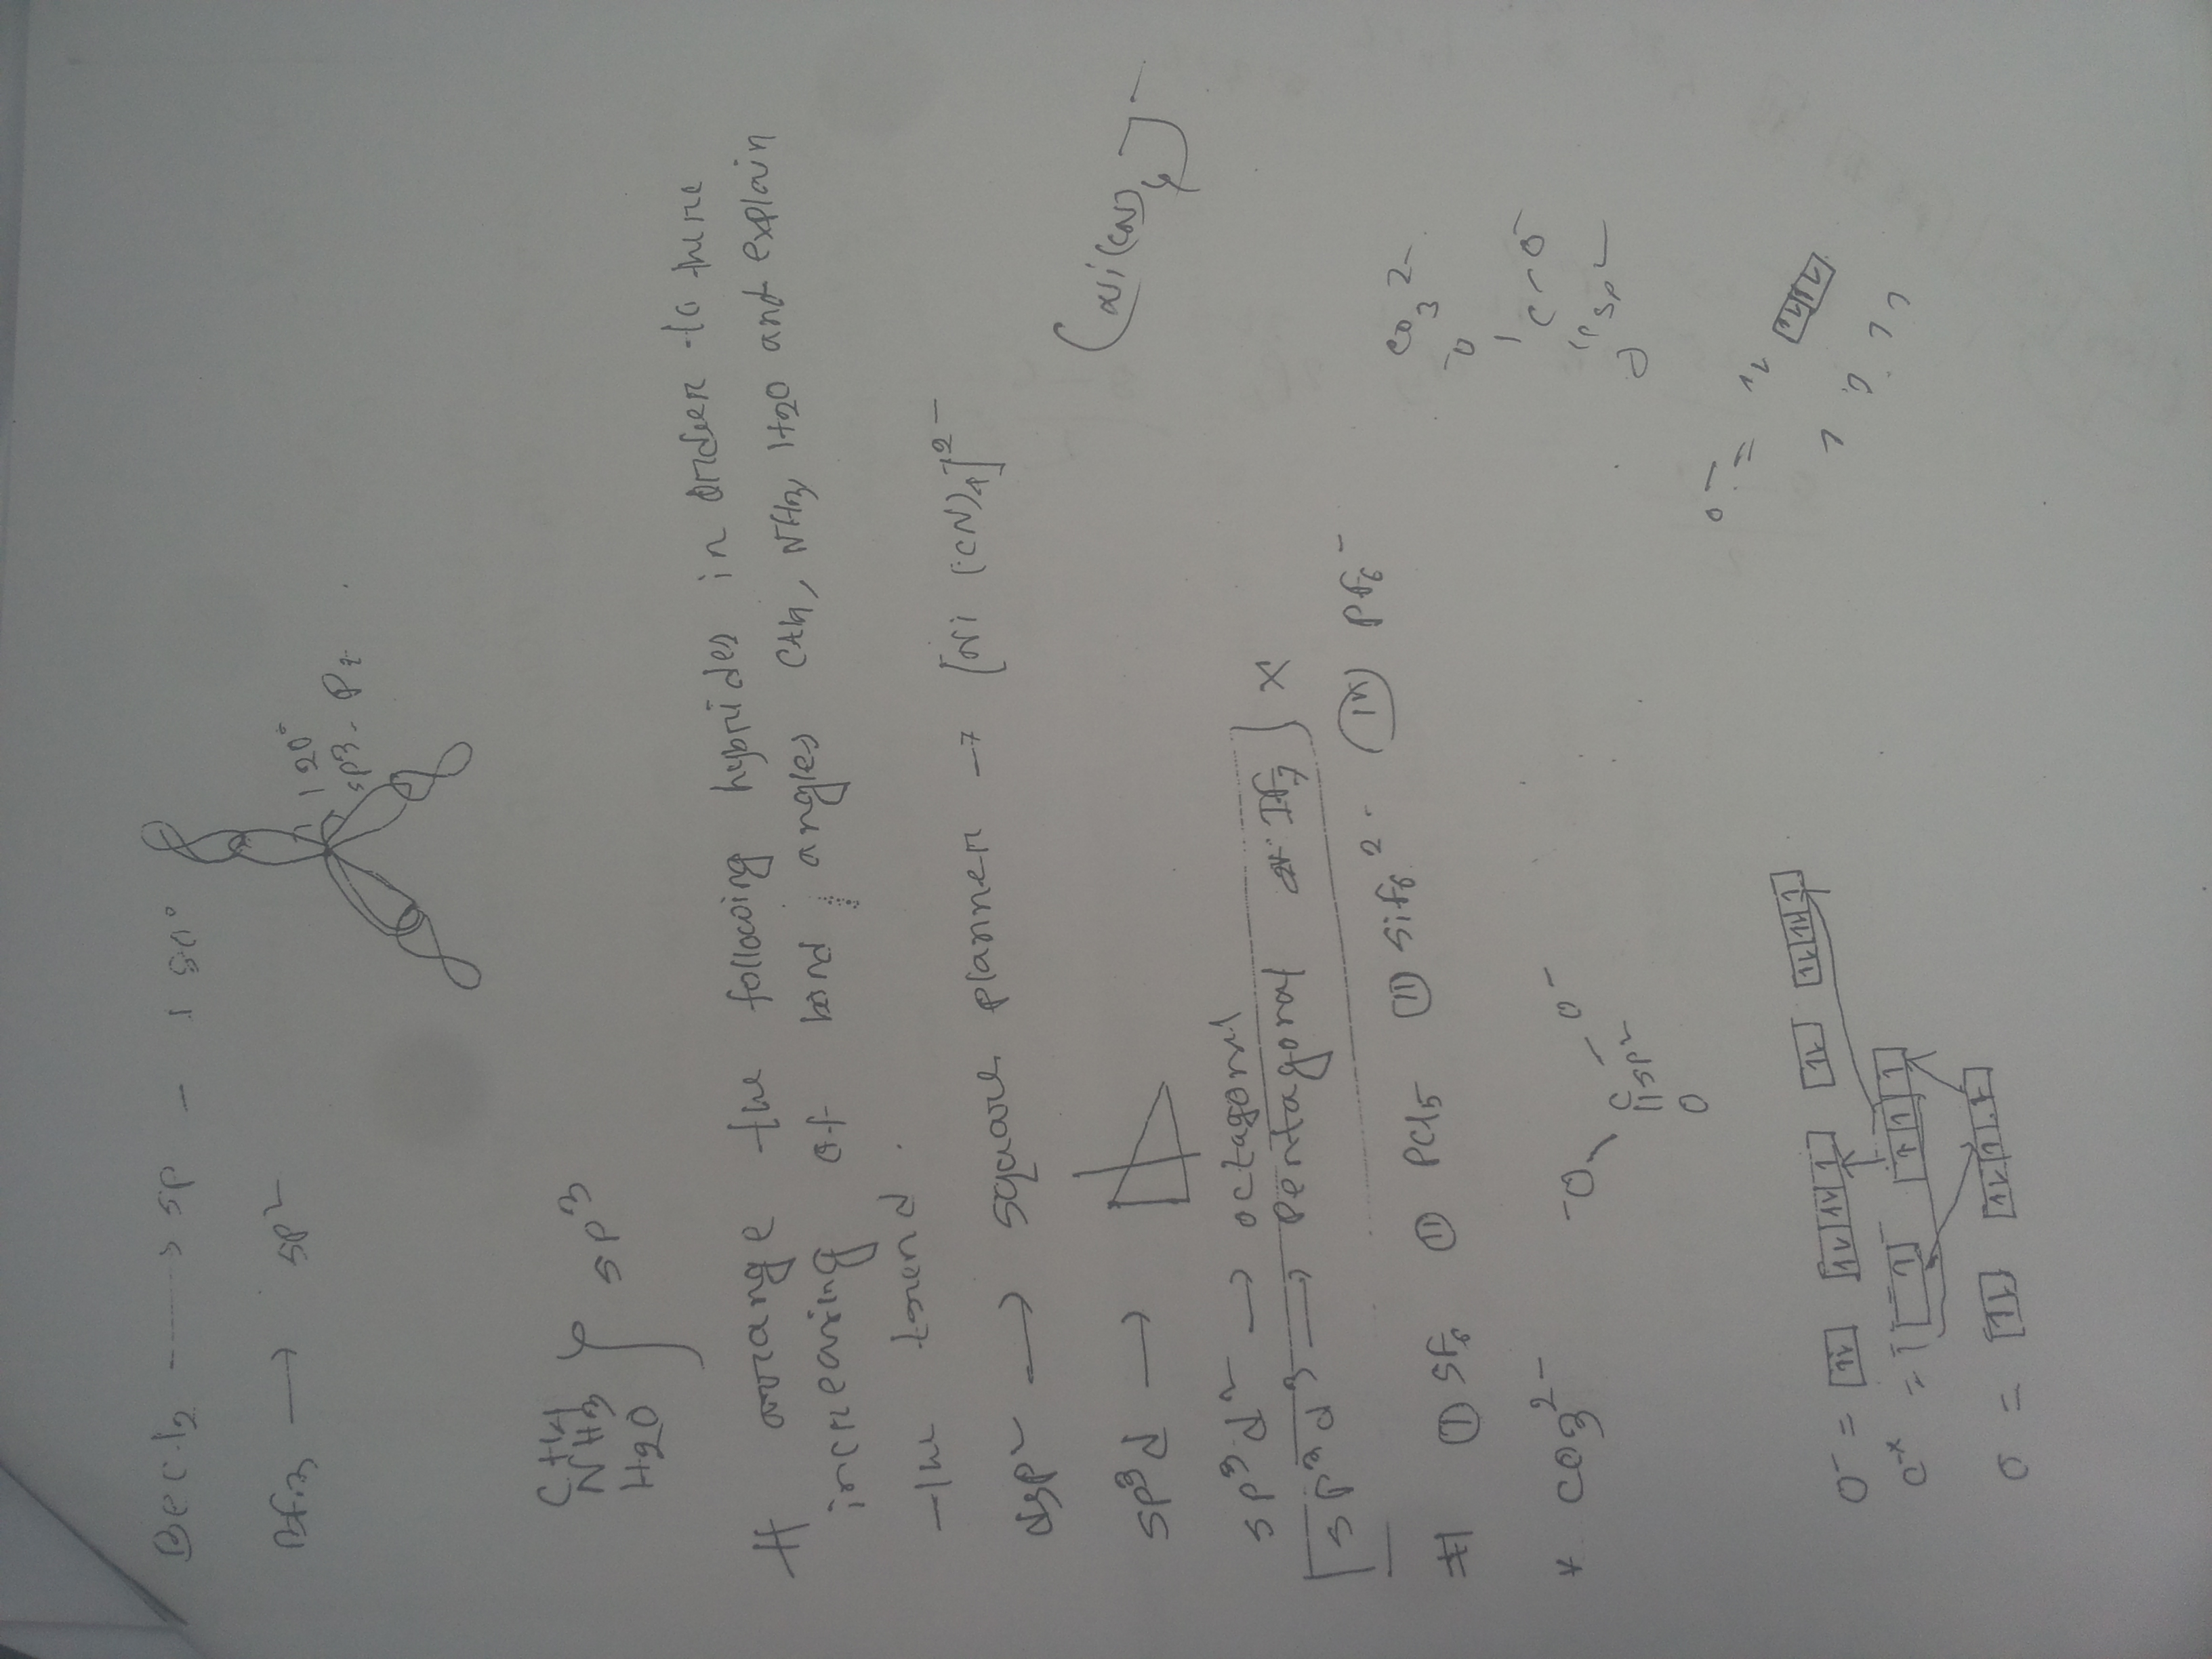 BeCl2 -----> sp - 180°
Bf3 → sp2
120°
CH4
NH3
H2O } sp3
# arrange the following hybrides in order to there
increaving of bond angles CH4, NH3, H2O and explain
the trend.
dsp2 → square planner → [Ni (CN)4]2-
[Ni(CN)4]
sp3d →
sp3d2 → octagonal
sp3d3 → pentagonal IF7 } X
# ① SF6 ⑪ PCl5 ⑪ Sif6 2- ⑭ Pf6-
* CO3 2-
-O C O-
|| sp2
O
CO3 2-
-O
C - O-
|| sp2
O
O- = 1L 1L 1L 1
O =
O- = 1L